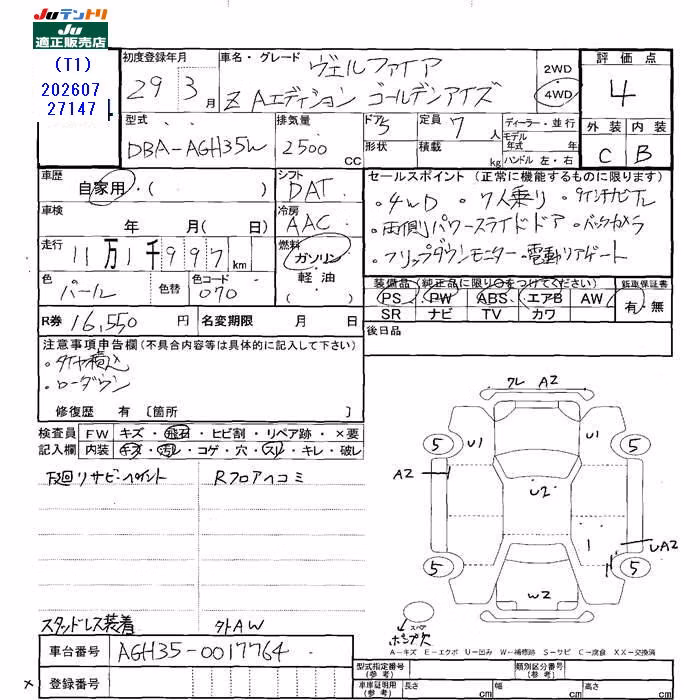 JUテントリ
JU
適正販売店
(T1)
202607
27147
初度登録年月
29 3月
車名・グレード
ヴェルファイア
Z Aエディション ゴールデンアイズ
2WD
4WD
評価点
4
外装 内装
C B
型式
DBA-AGH35W
排気量
2500 CC
ドア 5
形状
定員 7 人
積載 kg
ディーラー・並行
モデル年式 年式
ハンドル 左・右
車歴
自家用・( )
シフト
DAT
車検
年 月( 日)
冷房
AAC
走行
11万1千997km
燃料
ガソリン
軽・油
( )
色
パール
色替
色コード
070
R券 16,550 円
名変期限 月 日
セールスポイント (正常に機能するものに限ります)
・4WD ・7人乗り ・9インチナビTV
・両側パワースライドドア ・バックカメラ
・フリップダウンモニター ・電動リアゲート
装備品 (純正品に限り○をつけてください)
新車保証書
PS PW ABS エアB AW
有・無
SR ナビ TV カワ
後日品
注意事項申告欄(不具合内容等は具体的に記入して下さい)
・タイヤ積込
・ローダウン
修復歴 有 〔箇所 〕
検査員 FW キズ・飛石・ヒビ割・リペア跡・×要
記入欄 内装 キズ・汚れ・コゲ・穴・スリ・キレ・破レ
下廻りサビ・ペイント
Rフロアヘコミ
スタッドレス装着
外AW
クレ A2
5 U1 U1 5
A2
U2
1
UA2
5 5
W2
スペア
ポンプ欠
A-キズ E-エクボ U-凹み W-補修跡 S-サビ C-腐食 XX-交換済
車台番号
AGH35-0017764
× 登録番号
型式指定番号 (参考)
類別区分番号 (参考)
車庫証明用 (参考) 長さ cm 幅 cm 高さ cm